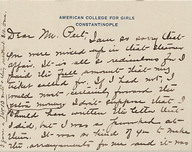 AMERICAN COLLEGE FOR GIRLS
CONSTANTINOPLE
Dear Mr. Peet: I am so sorry that
you were mixed up in that
affair. It is all so ridiculous for I
paid the full amount that my
ticket called for. If I had not, I
would most certainly forward the
money. I don't suppose that I
should have written the letter that
I did, but I was so provoked at
them. It was so kind of you to make
the arrangements for me and it was